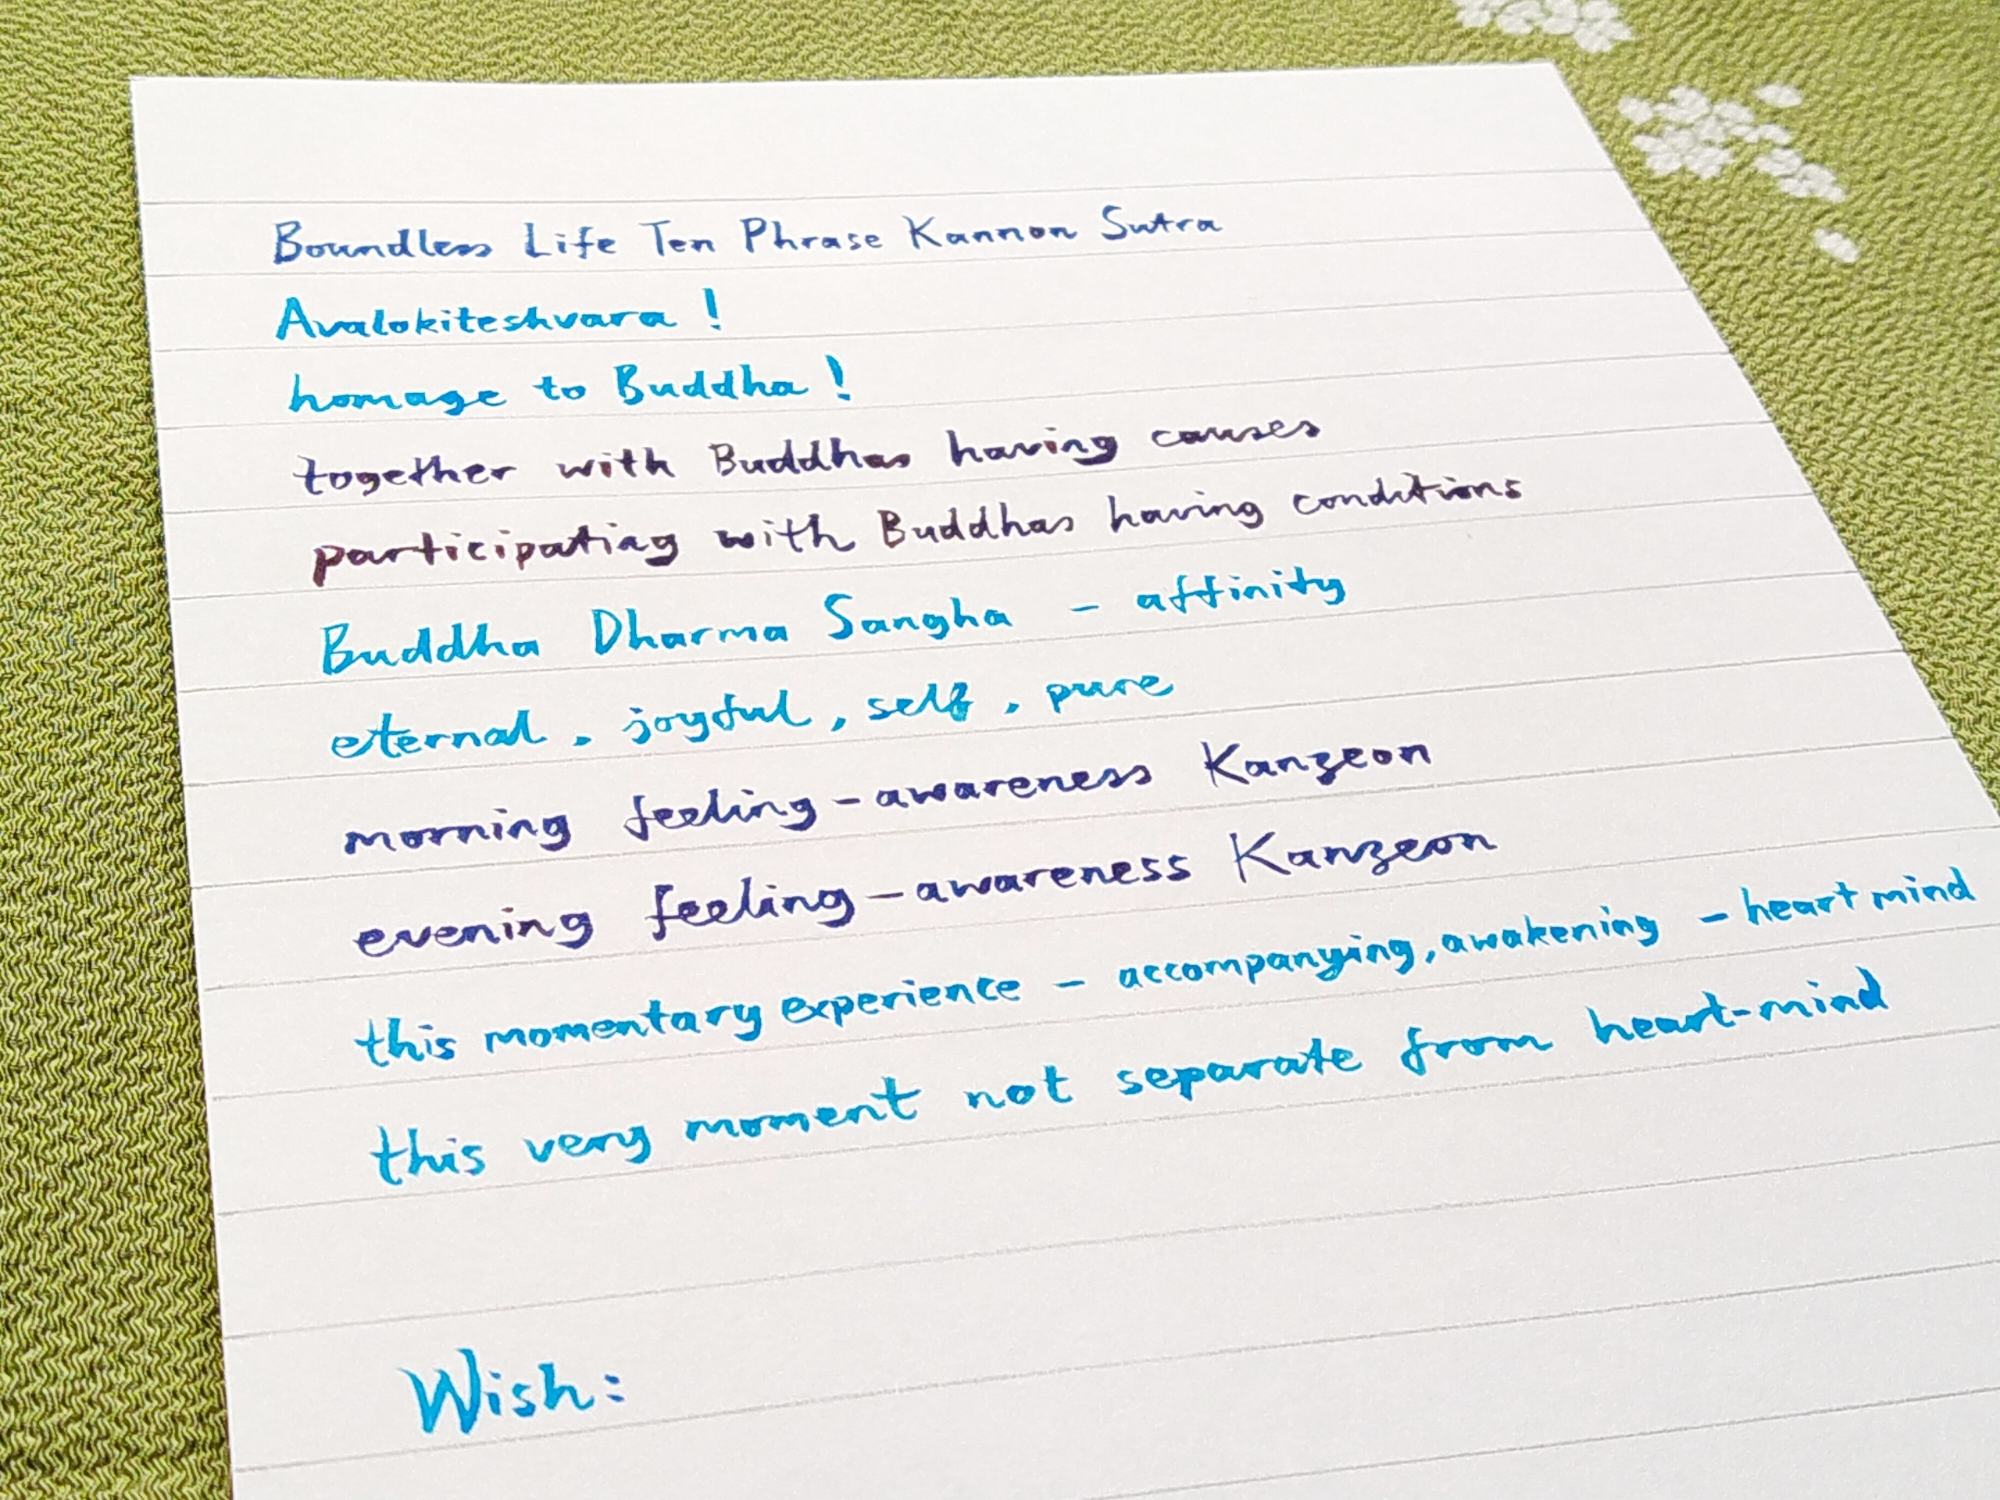 Boundless Life Ten Phrase Kannon Sutra
Avalokiteshvara !
homage to Buddha !
together with Buddhas having causes
participating with Buddhas having conditions
Buddha Dharma Sangha - affinity
eternal, joyful, self, pure
morning feeling-awareness Kanzeon
evening feeling-awareness Kanzeon
this momentary experience - accompanying, awakening - heart mind
this very moment not separate from heart-mind
Wish: